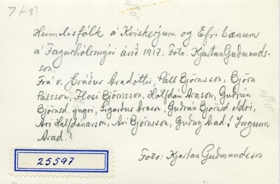 7 - 31
Heimilisfólk á Kirkjuhjum og Efri bænum
á Fagurhólsmýri árið 1917. Foto: Kjartan Guðmunds-
son.
Frá v. Oradotti, Páll Björnsson, Björn
Pálsson, Flosi Björnsson, Halfdán Arason, Guðrún
Björnsd. yngri, Sigurður Arason, Guðrún Björnsd. eldri,
Ari Halfdánarson, Ari Björnsson, Guðný Arad. Ingunn
Arad.
25597
Foto: Kjartan Guðmundsson